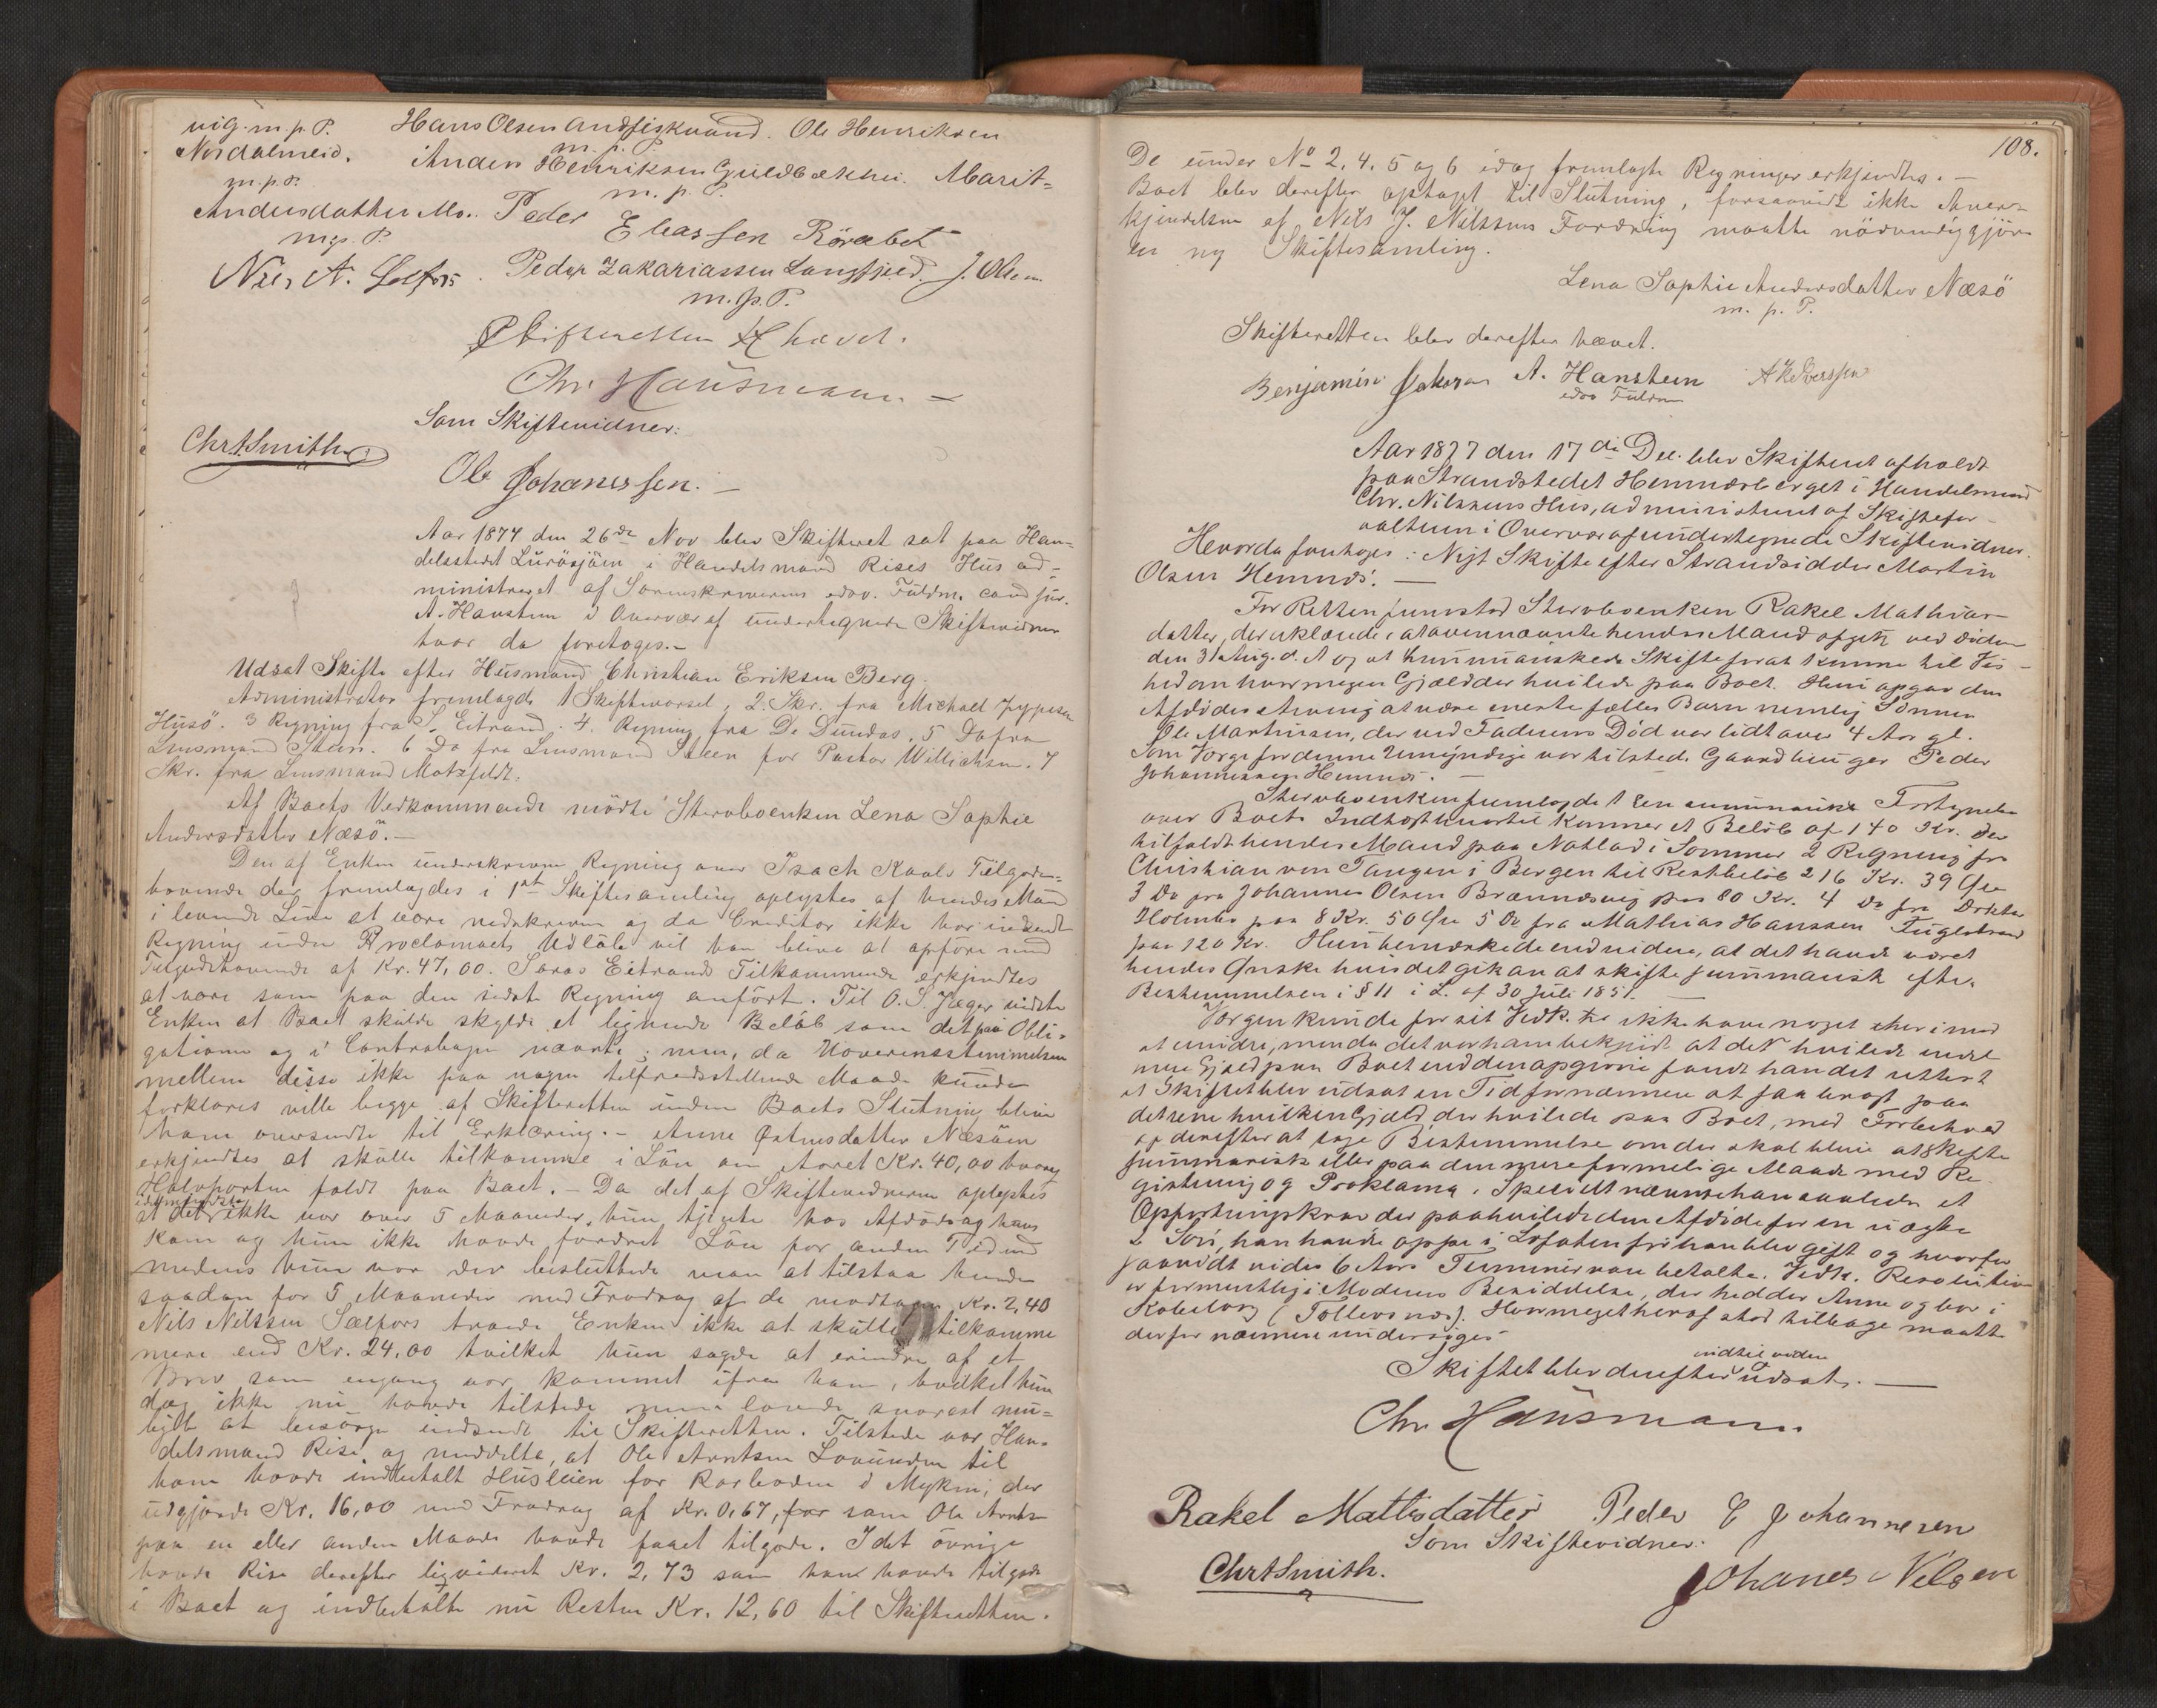 vig. m. p. P. Hans Olsen Andfiskvand. Ole Henriksen
m. p. P.
Nordalmeid. Anders Henriksen Guldbækhei. Marit-
m. p. P. m. p. P.
Andersdatter Mo. Peder Eliassen Rörabet
m. p. P.
Nils A. Selfors. Peder Zakariassen Langfjeld. J. Olsen
m. p. P.
Skifteretten hævet.
Chr. Hausmann.
Som Skiftevidner:
Chr A Smith
Ole Johanessen. —
Aar 1877 den 26de Nov blev Skifteret sat paa Han-
delsstedet Lurösjöen i Handelsmand Rises Hus ad-
ministreret af Sorenskriverens edsv. Fuldm. cand jur.
A. Hanstein i Overvær af undertegnede Skiftevidner
hvor da foretoges. —
Udsat Skifte efter Husmand Christian Eriksen Berg.
Administrator fremlagde 1 Skiftevarsel, 2. Skr. fra Michael Jeppesen
Husö. 3 Regning fra S. Eitrand. 4. Regning fra D. Dundas. 5 Do fra
Lensmand Steen. 6 Do fra Lensmand Steen for Pastor Williatsen. 7
Skr. fra Lensmand Motzfeldt.
Af Boets Vedkommende mödte Stervboenken Lena Sophie
Andersdatter Næsö. —
Den af Enken underskrevne Regning over Isach Kaals Tilgode-
havende der fremlagdes i 1ste Skiftesamling oplystes af hendes Mand
i levende Live at være nedskreven og da Creditor ikke har indsendt
Regning inden Proclamaets Udlöb vil han blive at opföre med
Tilgodehavende af Kr. 47,00. Saras Eitrands Tilkommende erkjendtes
at være som paa den sidste Regning anfört. Til O. S. Jæger vidste
Enken at Boet skulde skylde et lignende Belöb som det paa Obli-
gationen og i Contrabogen nævnte; men, da Uoverensstemmelsen
mellem disse ikke paa nogen tilfredsstillende Maade kunde
forklares ville begge af Skifteretten inden Boets Slutning blive
ham oversendte til Erklæring. — Anne Östensdatter Næsöen
erkjendtes at skulle tilkomme i Lön om Aaret Kr. 40,00 hvoraf
Halvparten faldt paa Boet. — Da det af Skiftevidnerne oplystes
at det ikke var over 5 Maaneder, hun tjente hos Afdöde og hans
Kone og hun ikke havde fordret Lön for anden Tid end
medens hun var der besluttede man at tilstaa hende
saadan for 5 Maaneder med Fradrag af de modtagne Kr. 2,40
Nils Nilssen Sælfors troede Enken ikke at skulle tilkomme
mere end Kr. 24,00 hvilket hun sagde at erindre af et
Brev som engang var kommet ifra ham, hvilket hun
dog ikke nu havde tilstede men lovede snarest mu-
ligt at besörge indsendt til Skifteretten. Tilstede var Han-
delsmand Rise og meddelte, at Ole Arntsen Lovunden til
ham havde indbetalt Husleien for Rorboden i Myken; der
udgjorde Kr. 16,00 med Fradrag af Kr. 0,67, for som Ole Arntsen
paa en eller anden Maade havde faaet tilgode. I det övrige
havde Rise derefter ligvideret Kr. 2,73 som han havde tilgode
i Boet og indbetalte nu Resten Kr. 12,60 til Skifteretten.
108.
De under No 2. 4. 5 og 6 idag fremlagte Regninger erkjendtes. —
Boet blev derefter optaget til Slutning, forsaavidt ikke Aner-
kjendelsen af Nils J. Nilssens Fordring maatte nödvendiggjöre
en ny Skiftesamling.
Lena Sophie Andersdatter Næsö
m. p. P.
Skifteretten blev derefter hævet.
Benjamin Jakobsen A. Hanstein A K Iverssen
edsv Fuldm
Aar 1877 den 17de Dec. blev Skifteret afholdt
paa Strandstedet Hemnæsberget i Handelsmand
Chr. Nilssens Hus, administreret af Skiftefor-
valteren i Overvær af undertegnede Skiftevidner.
Hvorda foretoges: Nyt Skifte efter Strandsidder Martin
Olsen Hemnes. —
For Retten fremstod Stervboenken Rakel Mathias-
datter, der erklærede, at ovennævnte hendes Mand afgik ved Döden
den 31 Aug. d. A og at hun önskede Skifte for at komme til Vis-
hed om hvormegen Gjæld der hvilede paa Boet. Hun opgav den
Afdödes Arving at være eneste fælles Barn nemlig Sönnen
Ole Martinsen, der ved Faderens Död var lidt over 4 Aar gl.
Som Værge for denne Umyndige var tilstede Gaardbruger Peder
Johannessen Hemnes. —
Stervboenken fremlagde 1 En summarisk Fortegnelse
over Boets Indtægt hvortil kommer et Belöb af 140 Kr. der
tilfaldt hendes Mand paa Notlod i Sommer 2 Regning fra
Christian von Tangen i Bergen til Restbelöb 216 Kr. 39 Öre
3 Do fra Johannes Olsen Brændsvig paa 80 Kr. 4 Do fra Doktor
Holmbo paa 8 Kr. 50 Öre 5 Do fra Mathias Hanssen Fuglstrand
paa 120 Kr. Hun bemærkede endvidere, at det havde været
hendes Ønske hvis det gik an at skifte summarisk efter
Bestemmelsen i § 11 i L. af 30 Juli 1851. —
Værgen kunde for sit Vedk. ikke have noget herimod
at erindre, men da det var ham bekjendt at der hvilede endel
mere Gjæld paa Boet end den opgivne fandt han det rettest
at Skiftet blev udsat en Tid for nærmere at faa bragt paa
det rene hvilken Gjæld der hvilede paa Boet, med Forbehold
af derefter at tage Bestemmelse om der skal blive at skifte
summarisk eller paa den mere formelige Maade med Re-
gistrering og Proklama. Specielt nævnte han saaledes et
Opfostringskrav der paahvilede den Afdöde for en uægte
Sön, han havde oppe i Lofoten för han blev gift og hvorfor
saavidt vides 6 Aars Terminer vare betalte. Vedk. Resolution
er formentlig i Moderens Besiddelse, der hedder Anne og bor i
Kabelvaag (Tollevsnes). Hvormeget heraf stod tilbage maatte
derfor nærmere undersöges
Skiftet blev derefter indtil videre udsat. —
Chr. Hausmann.
Rakel Mattisdatter Peder C Johannesen
Som Skiftevidner:
Chr A Smith. Johanes Nilsen